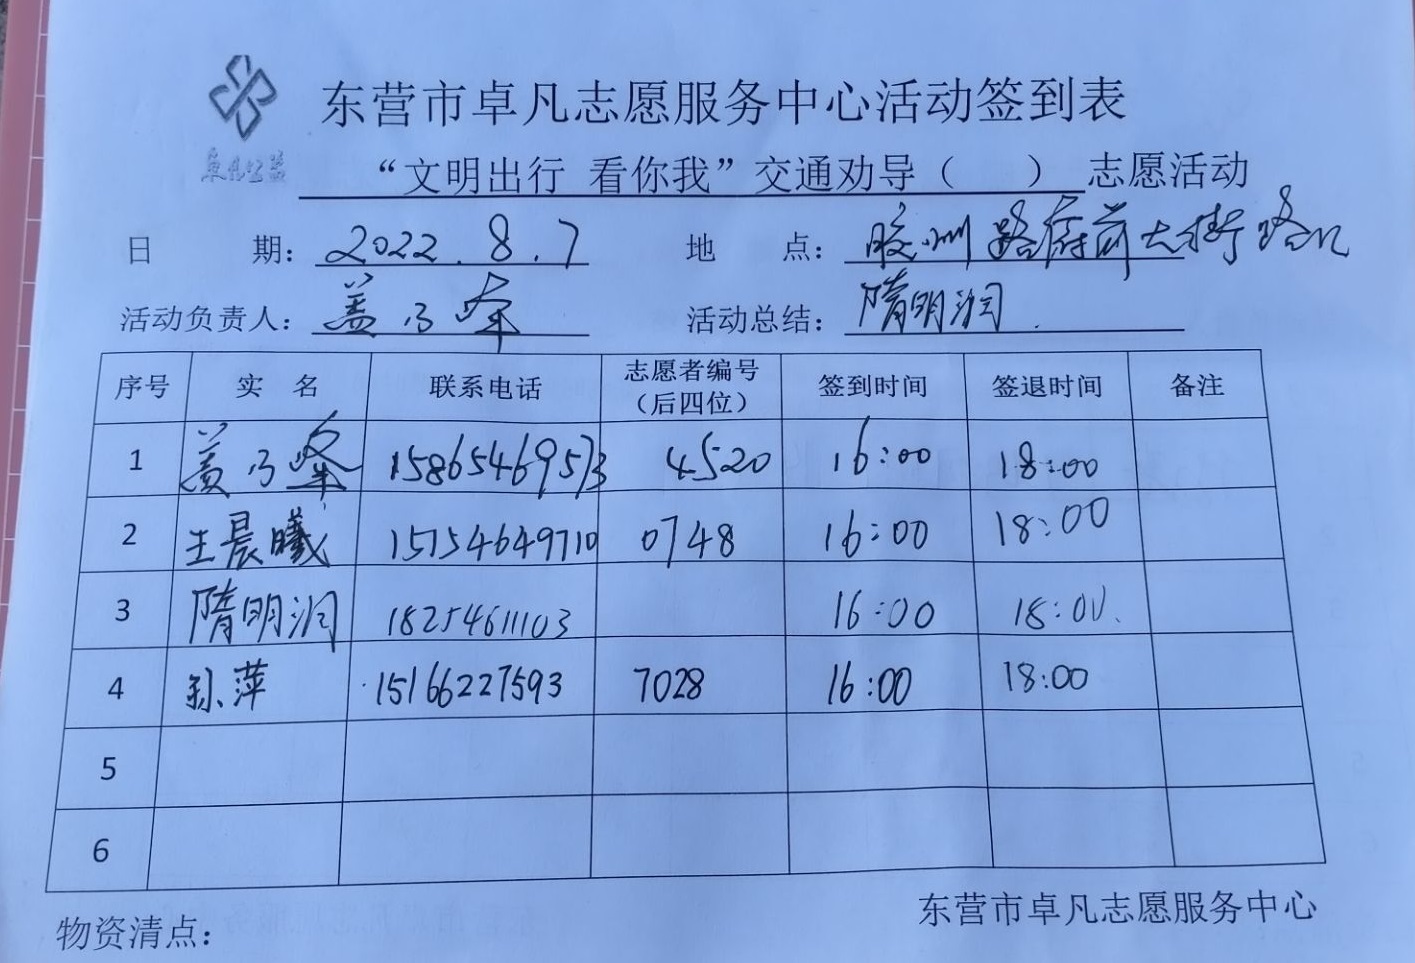 卓凡公益
东营市卓凡志愿服务中心活动签到表
“文明出行 看你我”交通劝导（ ） 志愿活动
日 期： 2022.8.7 地 点： 胶州路府前大街路口
活动负责人： 盖乃峰 活动总结： 隋明润
序号 实 名 联系电话 志愿者编号（后四位） 签到时间 签退时间 备注
1 盖乃峰 15865469573 4520 16:00 18:00
2 王晨曦 15754649710 0748 16:00 18:00
3 隋明润 18254611103 16:00 18:00
4 孙萍 15166227593 7028 16:00 18:00
5
6
东营市卓凡志愿服务中心
物资清点：